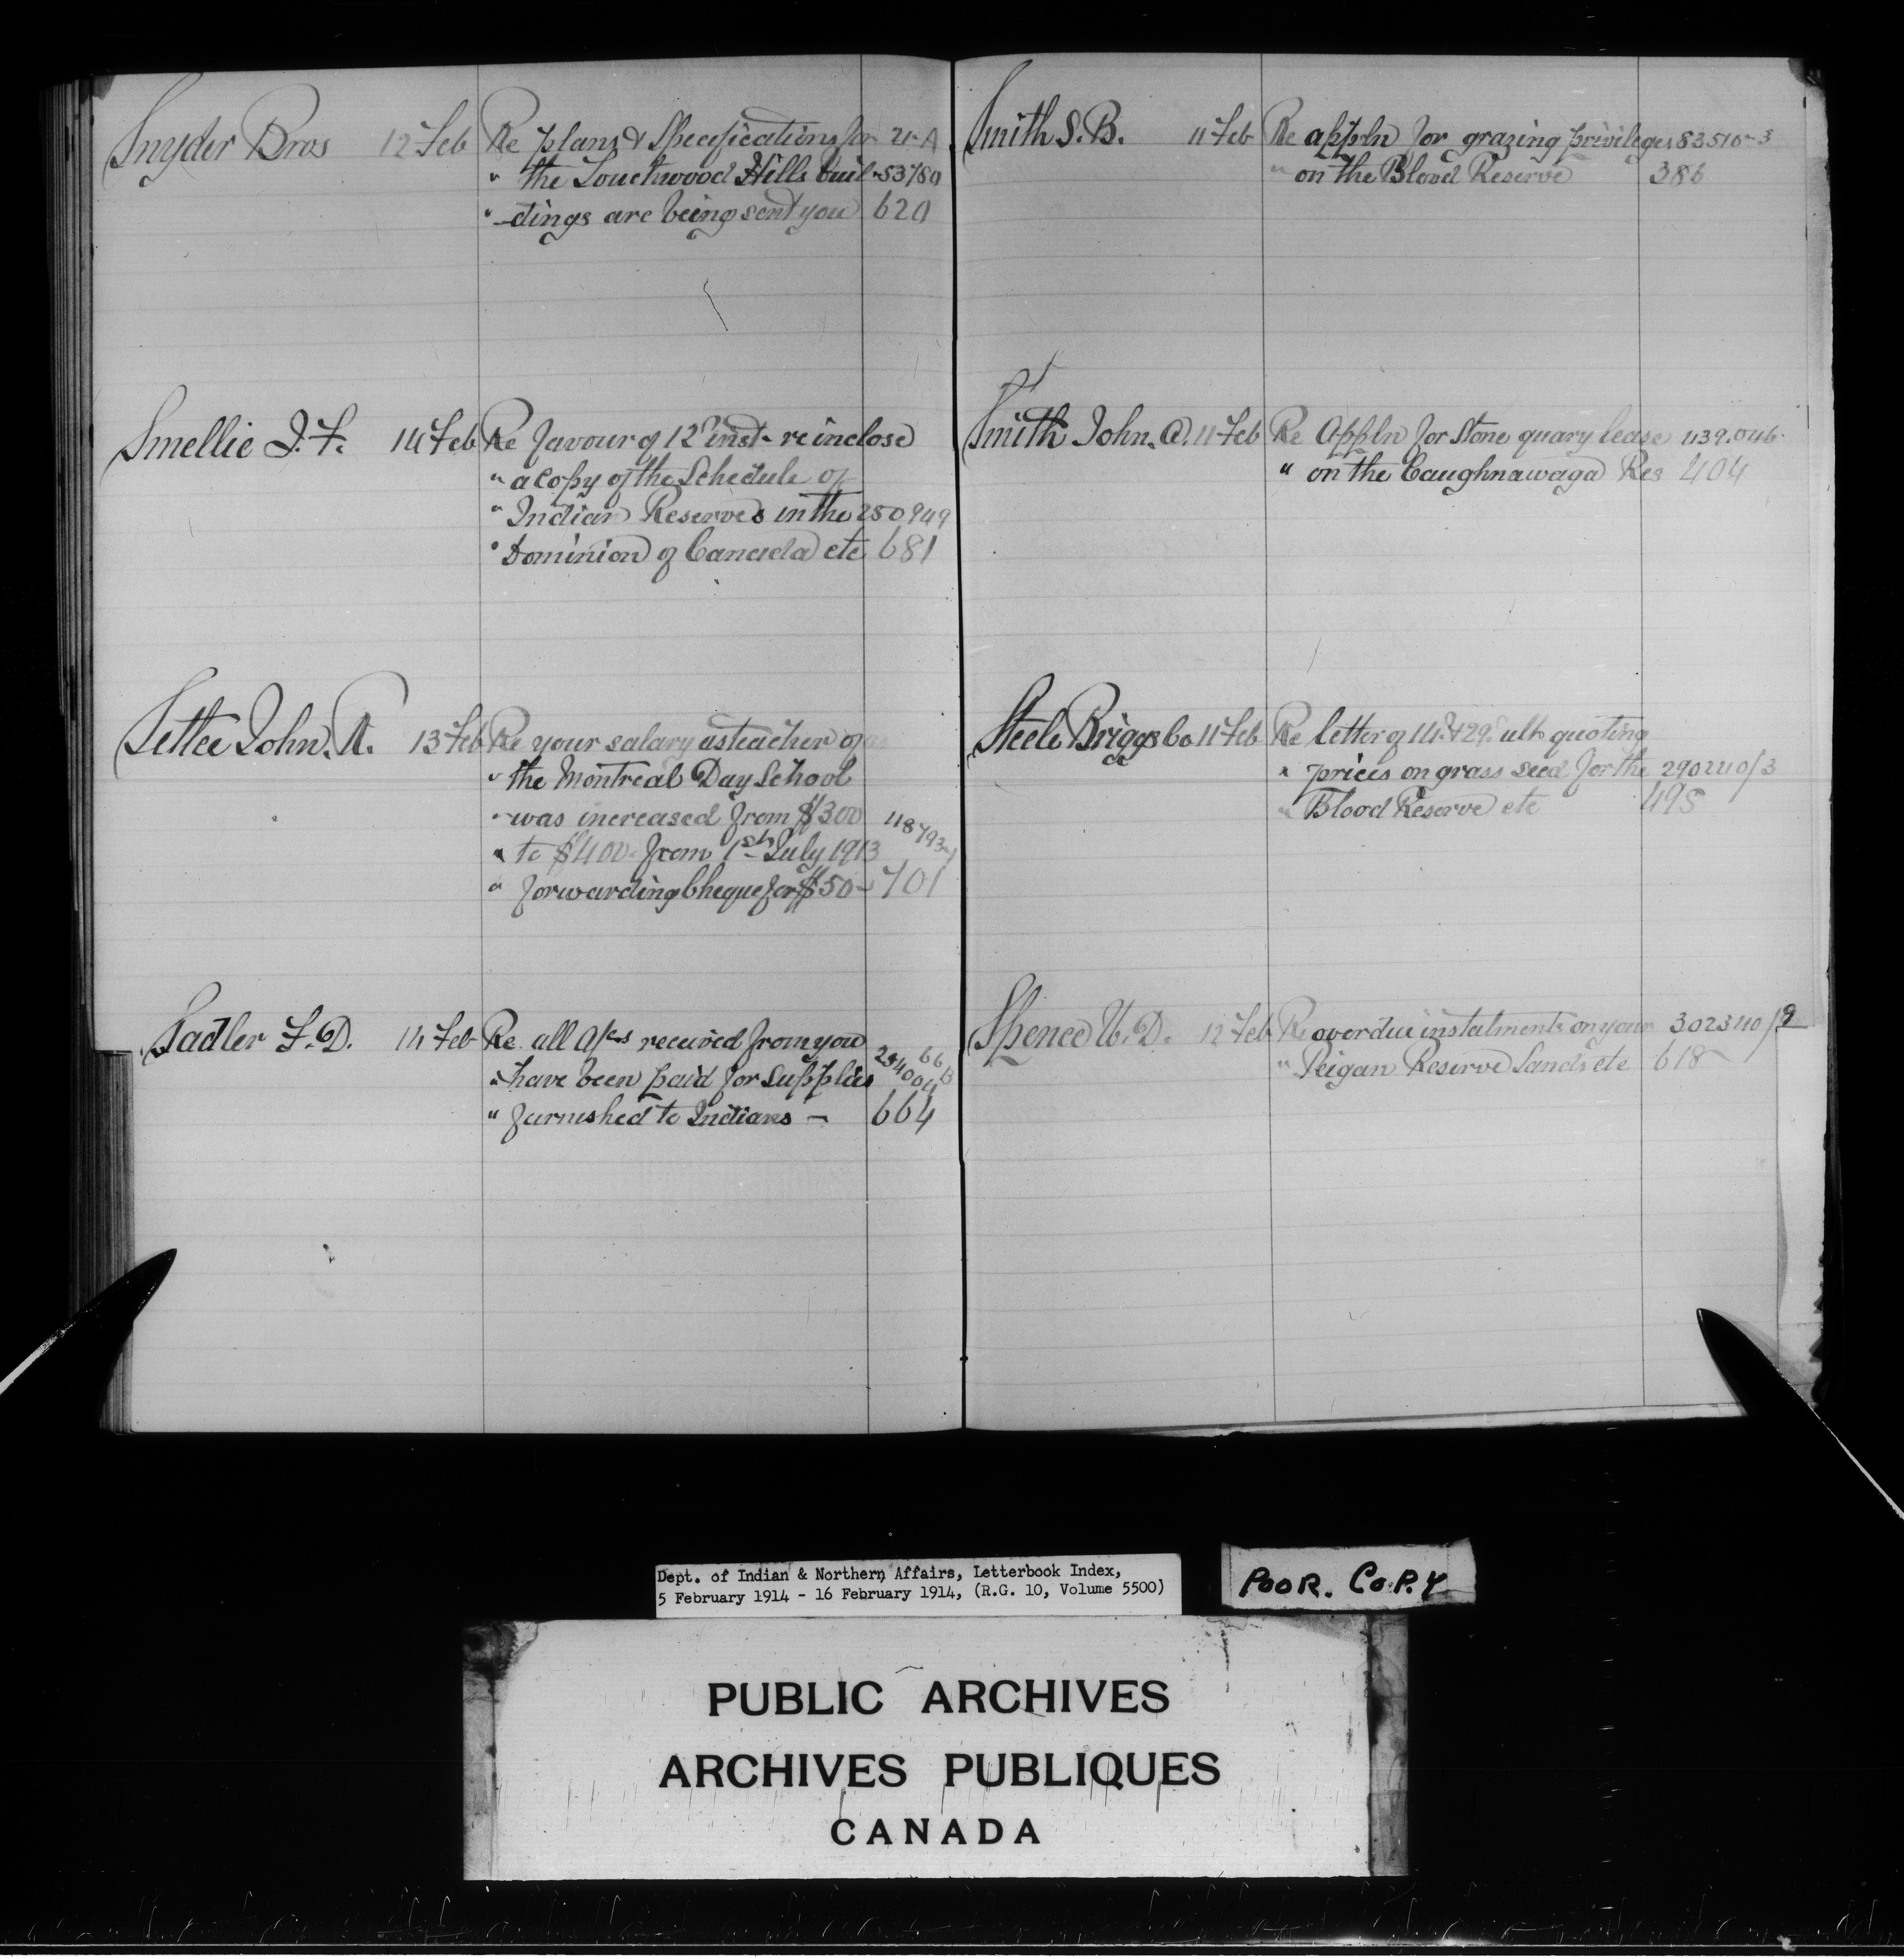 Snyder Bros 12 Feb Re plans & Specifications for 21-A
" the Touchwood Hills buil- 53780
" -dings are being sent you 620
Smellie J. F. 14 Feb Re favour of 12 inst- re inclose
" a Copy of the Schedule of
" Indian Reserves in the 250949
" Dominion of Canada etc 681
Settee John. R. 13 Feb Re your salary as teacher of
" the Montreal Day School
" was increased from $300 118793-1
" to $400- from 1st July 1913
" forwarding Cheque for $50- 701
Sadler F. D. 14 Feb Re all a/cs received from you
" have been paid for supplies
" furnished to Indians - 664
Smith S. B. 11 Feb Re appln for grazing privileges 83510-3
" on the Blood Reserve 386
Smith John. A. 11 Feb Re Appln for Stone quary lease 1139.046
" on the Caughnawaga Res 404
Steele Briggs Co 11 Feb Re letter of 14 & 29 ulto quoting
" prices on grass seed for the 290240/3
" Blood Reserve etc 495
Spence W. D. 12 Feb Re overdue instalments on your 302340/9
" Peigan Reserve Lands etc 618
Dept. of Indian & Northern Affairs, Letterbook Index,
5 February 1914 - 16 February 1914, (R.G. 10, Volume 5500)
POOR. COPY
PUBLIC ARCHIVES
ARCHIVES PUBLIQUES
CANADA